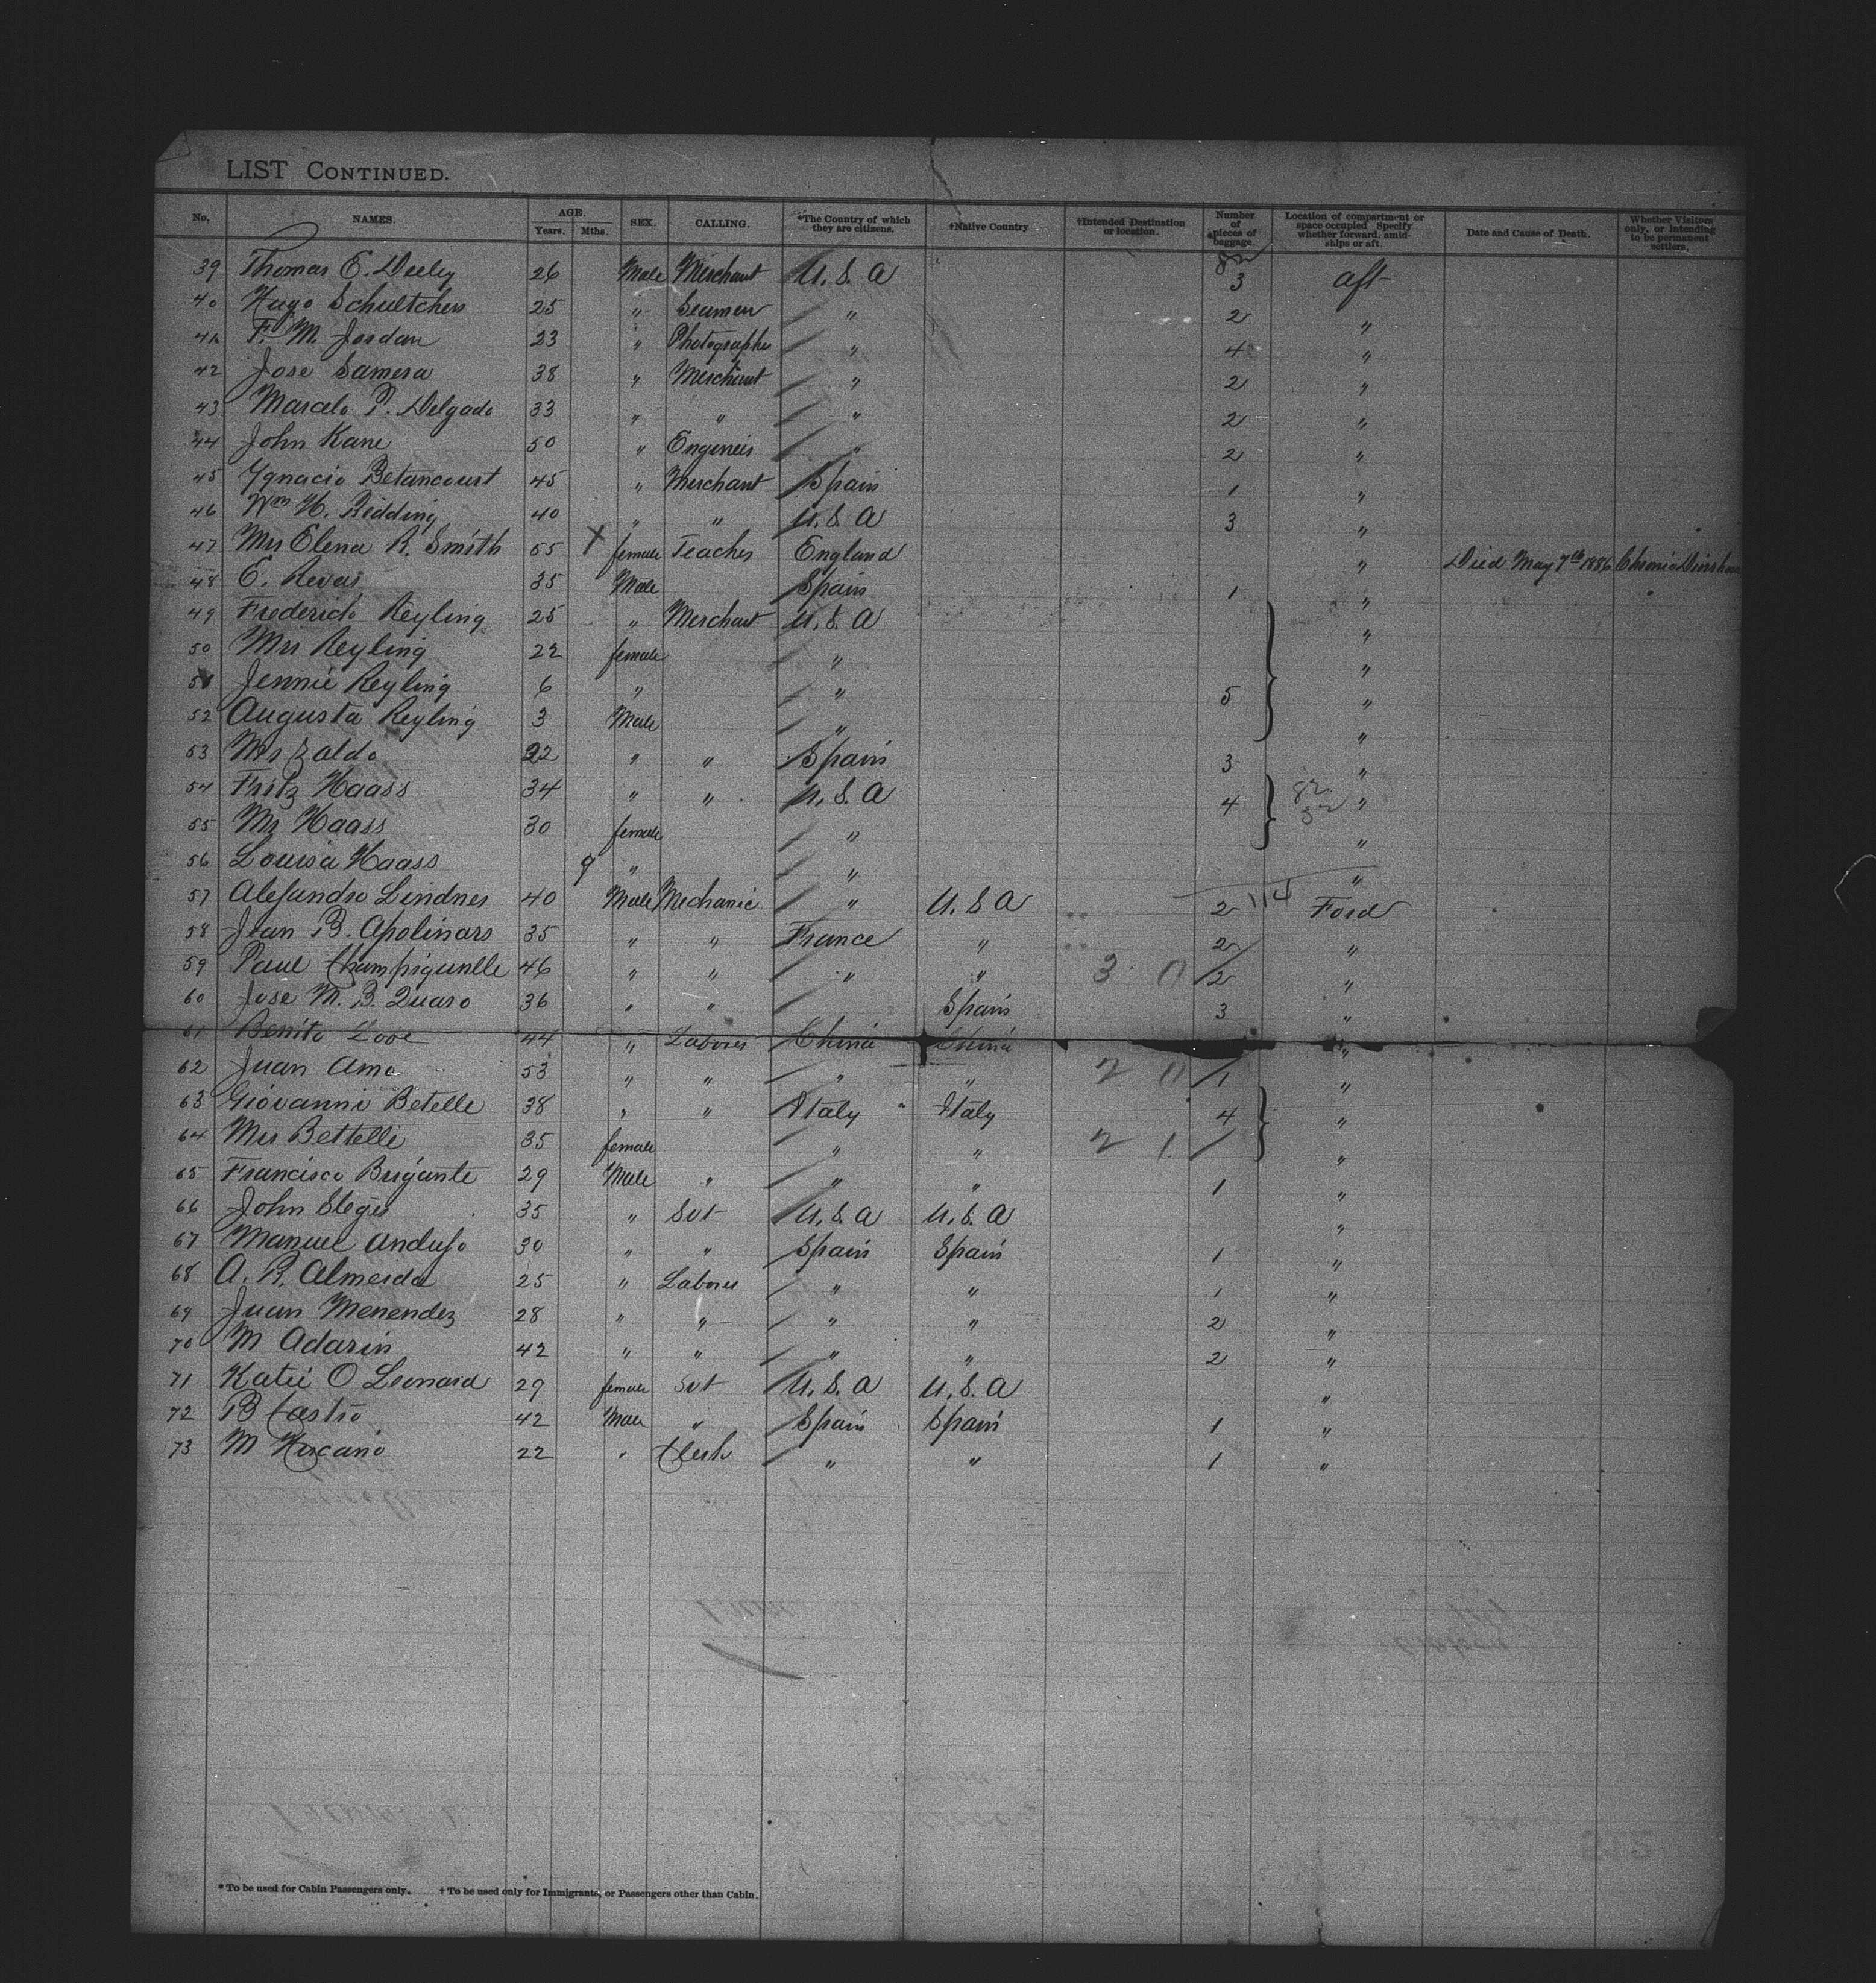 LIST CONTINUED.
No. NAMES. AGE. Years. Mths. SEX. CALLING. *The Country of which they are citizens. †Native Country †Intended Destination or location. Number of pieces of baggage. Location of compartment or space occupied Specify whether forward, amidships or aft. Date and Cause of Death. Whether Visitors only, or intending to be permanent settlers.
39 Thomas E. Deely 26 Male Merchant U.S.A 3 aft
40 Hugo Schueltchers 25 " Seaman " 2 "
41 F. M. Jordan 23 " Photographer " 4 "
42 Jose Samera 38 " Merchant " 2 "
43 Marcelo P. Delgado 33 " " " 2 "
44 John Kane 50 " Engineer " 2 "
45 Ygnacio Betancourt 45 " Merchant Spain 1 "
46 Wm H. Redding 40 " " U.S.A 3 "
47 Mrs Elena R. Smith 55 X female Teacher England " Died May 7th 1886 Chronic
48 E. Revas 35 Male Spain 1 "
49 Frederick Reyling 25 " Merchant U.S.A "
50 Mrs Reyling 22 female " "
51 Jennie Reyling 6 " " 5 "
52 Augusta Reyling 3 Male " "
53 Mr Zaldo 22 " " Spain 3 "
54 Fritz Haass 34 " " U.S.A 4 "
55 Mrs Haass 30 female " "
56 Louisa Haass 9 " " "
57 Alejandro Lindner 40 Male Mechanic " U.S.A 2 114 Ford
58 Jean B. Apolinars 35 " " France " 2 "
59 Paul 46 " " " " 3 0 2 "
60 Jose M. B. Quaro 36 " " Spain 3 "
61 Benito 44 " Laborer China China "
62 Juan Amo 53 " " " " 2 0 1 "
63 Giovanni Betelle 38 " " Italy Italy 4 "
64 Mrs Bettelli 35 female " " 2 1 "
65 Francisco Brigante 29 Male " " " 1 "
66 John Steger 35 " Svt U.S.A U.S.A "
67 Manuel Andujo 30 " " Spain Spain 1 "
68 A. R. Almerda 25 " Laborer " " 1 "
69 Juan Menendez 28 " " " " 2 "
70 M Adarin 42 " " " " 2 "
71 Katie O Leonard 29 female Svt U.S.A U.S.A "
72 B Castro 42 Male " Spain Spain 1 "
73 M 22 " Clerk " " 1 "
*To be used for Cabin Passengers only. †To be used only for Immigrants, or Passengers other than Cabin.